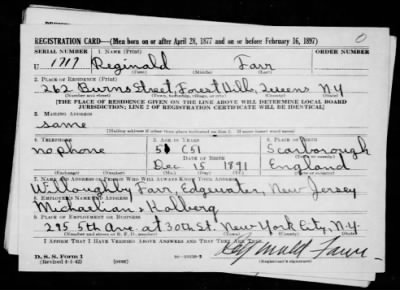 REGISTRATION CARD—(Men born on or after April 28, 1877 and on or before February 16, 1897)
SERIAL NUMBER 1. NAME (Print)
U 1717 Reginald Farr
(First) (Middle) (Last)
2. PLACE OF RESIDENCE (Print)
262 Burns Street, Forest Hills, Queens NY
(Number and street) (Town, township, village, or city) (County) (State)
[THE PLACE OF RESIDENCE GIVEN ON THE LINE ABOVE WILL DETERMINE LOCAL BOARD
JURISDICTION; LINE 2 OF REGISTRATION CERTIFICATE WILL BE IDENTICAL]
3. MAILING ADDRESS
same
[Mailing address if other than place indicated on line 2. If same insert word same]
4. TELEPHONE 5. AGE IN YEARS 6. PLACE OF BIRTH
no phone 50 Scarborough
DATE OF BIRTH
Dec 15 1891 England
7. NAME AND ADDRESS OF PERSON WHO WILL ALWAYS KNOW YOUR ADDRESS
Willoughby Farr, Edgewater, New Jersey
8. EMPLOYER'S NAME AND ADDRESS
Michaelian & Kolberg
9. PLACE OF EMPLOYMENT OR BUSINESS
295 5th Ave. at 30th St. New York City, NY.
(Number and street or R. F. D. number) (Town) (County) (State)
I AFFIRM THAT I HAVE VERIFIED ABOVE ANSWERS AND THAT THEY ARE TRUE.
D. S. S. Form 1 Reginald Farr
(Revised 4-1-42) (over) (Registrant's signature)